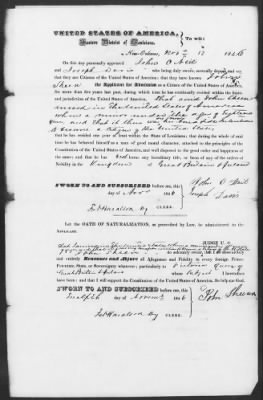 UNITED STATES OF AMERICA,
Eastern District of Louisiana.
New Orleans, Nov 1846
On this day personally appeared John O'Neil
and Joseph Davis who being duly sworn, severally depose and say
that they are Citizens of the United States of America; that they know
Sheen the Applicant for Admission as a Citizen of the United States of America,
for more than five years last past, during which time he has continually resided within the limits
and jurisdiction of the United States of America, that said John Sheen
in the United States of America
when a minor under the age of eighteen
years, and that it was his intention
to become a citizen of the United States
for one year last past within the State of Louisiana; that during the whole of said
time he has behaved himself as a man of good moral character, attached to the principles of the
Constitution of the United States of America, and well disposed to the good order and happiness of
the same; and that he has not borne any hereditary title, or been of any of the orders of
Nobility in the Kingdom of Great Britain & Ireland
SWORN TO AND SUBSCRIBED before me, this
day of Nov 1846
CLERK.
John O'Neil
Joseph Davis
Let the OATH OF NATURALIZATION, as prescribed by Law, be administered to the
APPLICANT.
JUDGE U. S.
do solemnly swear, that I do absolutely
and entirely Renounce and Abjure all Allegiance and Fidelity to every foreign Prince
Potentate, State or Sovereignty whatever; particularly to Victoria Queen of
Great Britain & Ireland whose subject I heretofore
have been; and that I will support the Constitution of the United States of America. So help me God.
SWORN TO AND SUBSCRIBED before me, this
Twelfth day of November 1846
CLERK.
John Sheen